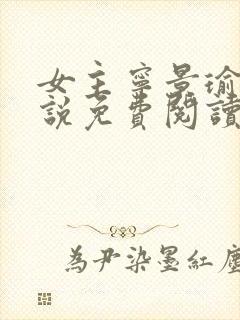 女主寧景瑜
說免費閱讀
為尹染墨紅塵